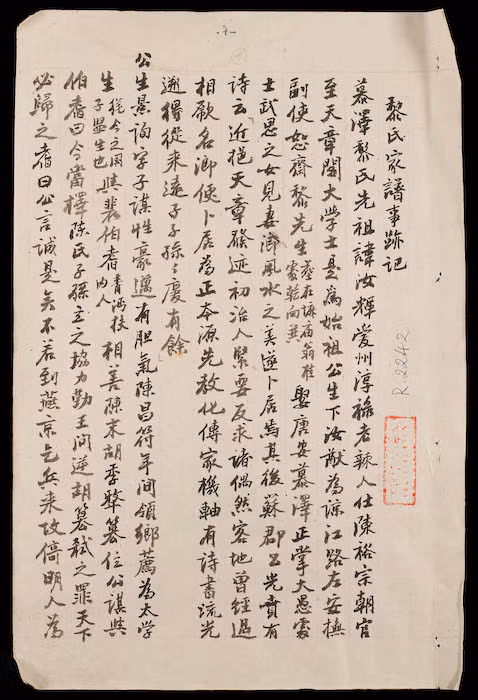 黎氏家譜事跡記
慕澤黎氏先祖諱汝輝愛州淳祿老辣人仕陳裕宗朝官
至天章閣大學士是爲始祖公生下汝猷為諒江路左安撫
副使恕齋黎先生墓在庙翁社處乾向巽娶唐安慕澤正掌大愚處
士武思之女見妻鄉風水之美遂卜居焉其後蘇郡公光賁有
詩云近挹天章發迹初治人緊要反求諸偶然客地曾經過
相厥名鄉便卜居為正本源先教化傳家機軸有詩書疏光
遡得從来遠子子孫〻慶有餘
公生景詢字子謀性豪邁有胆氣陳昌符年間領鄉薦為太學
生猶今之國子學生也與裴伯耆青沔扶內人相善陳末胡季犛篡位公謀與
伯耆曰今當擇陳氏子孫立之協力勤王問逆胡篡弑之罪天下
必歸之耆曰公言誠是矣不若到燕京乞兵来攻倘明人為
R.2242